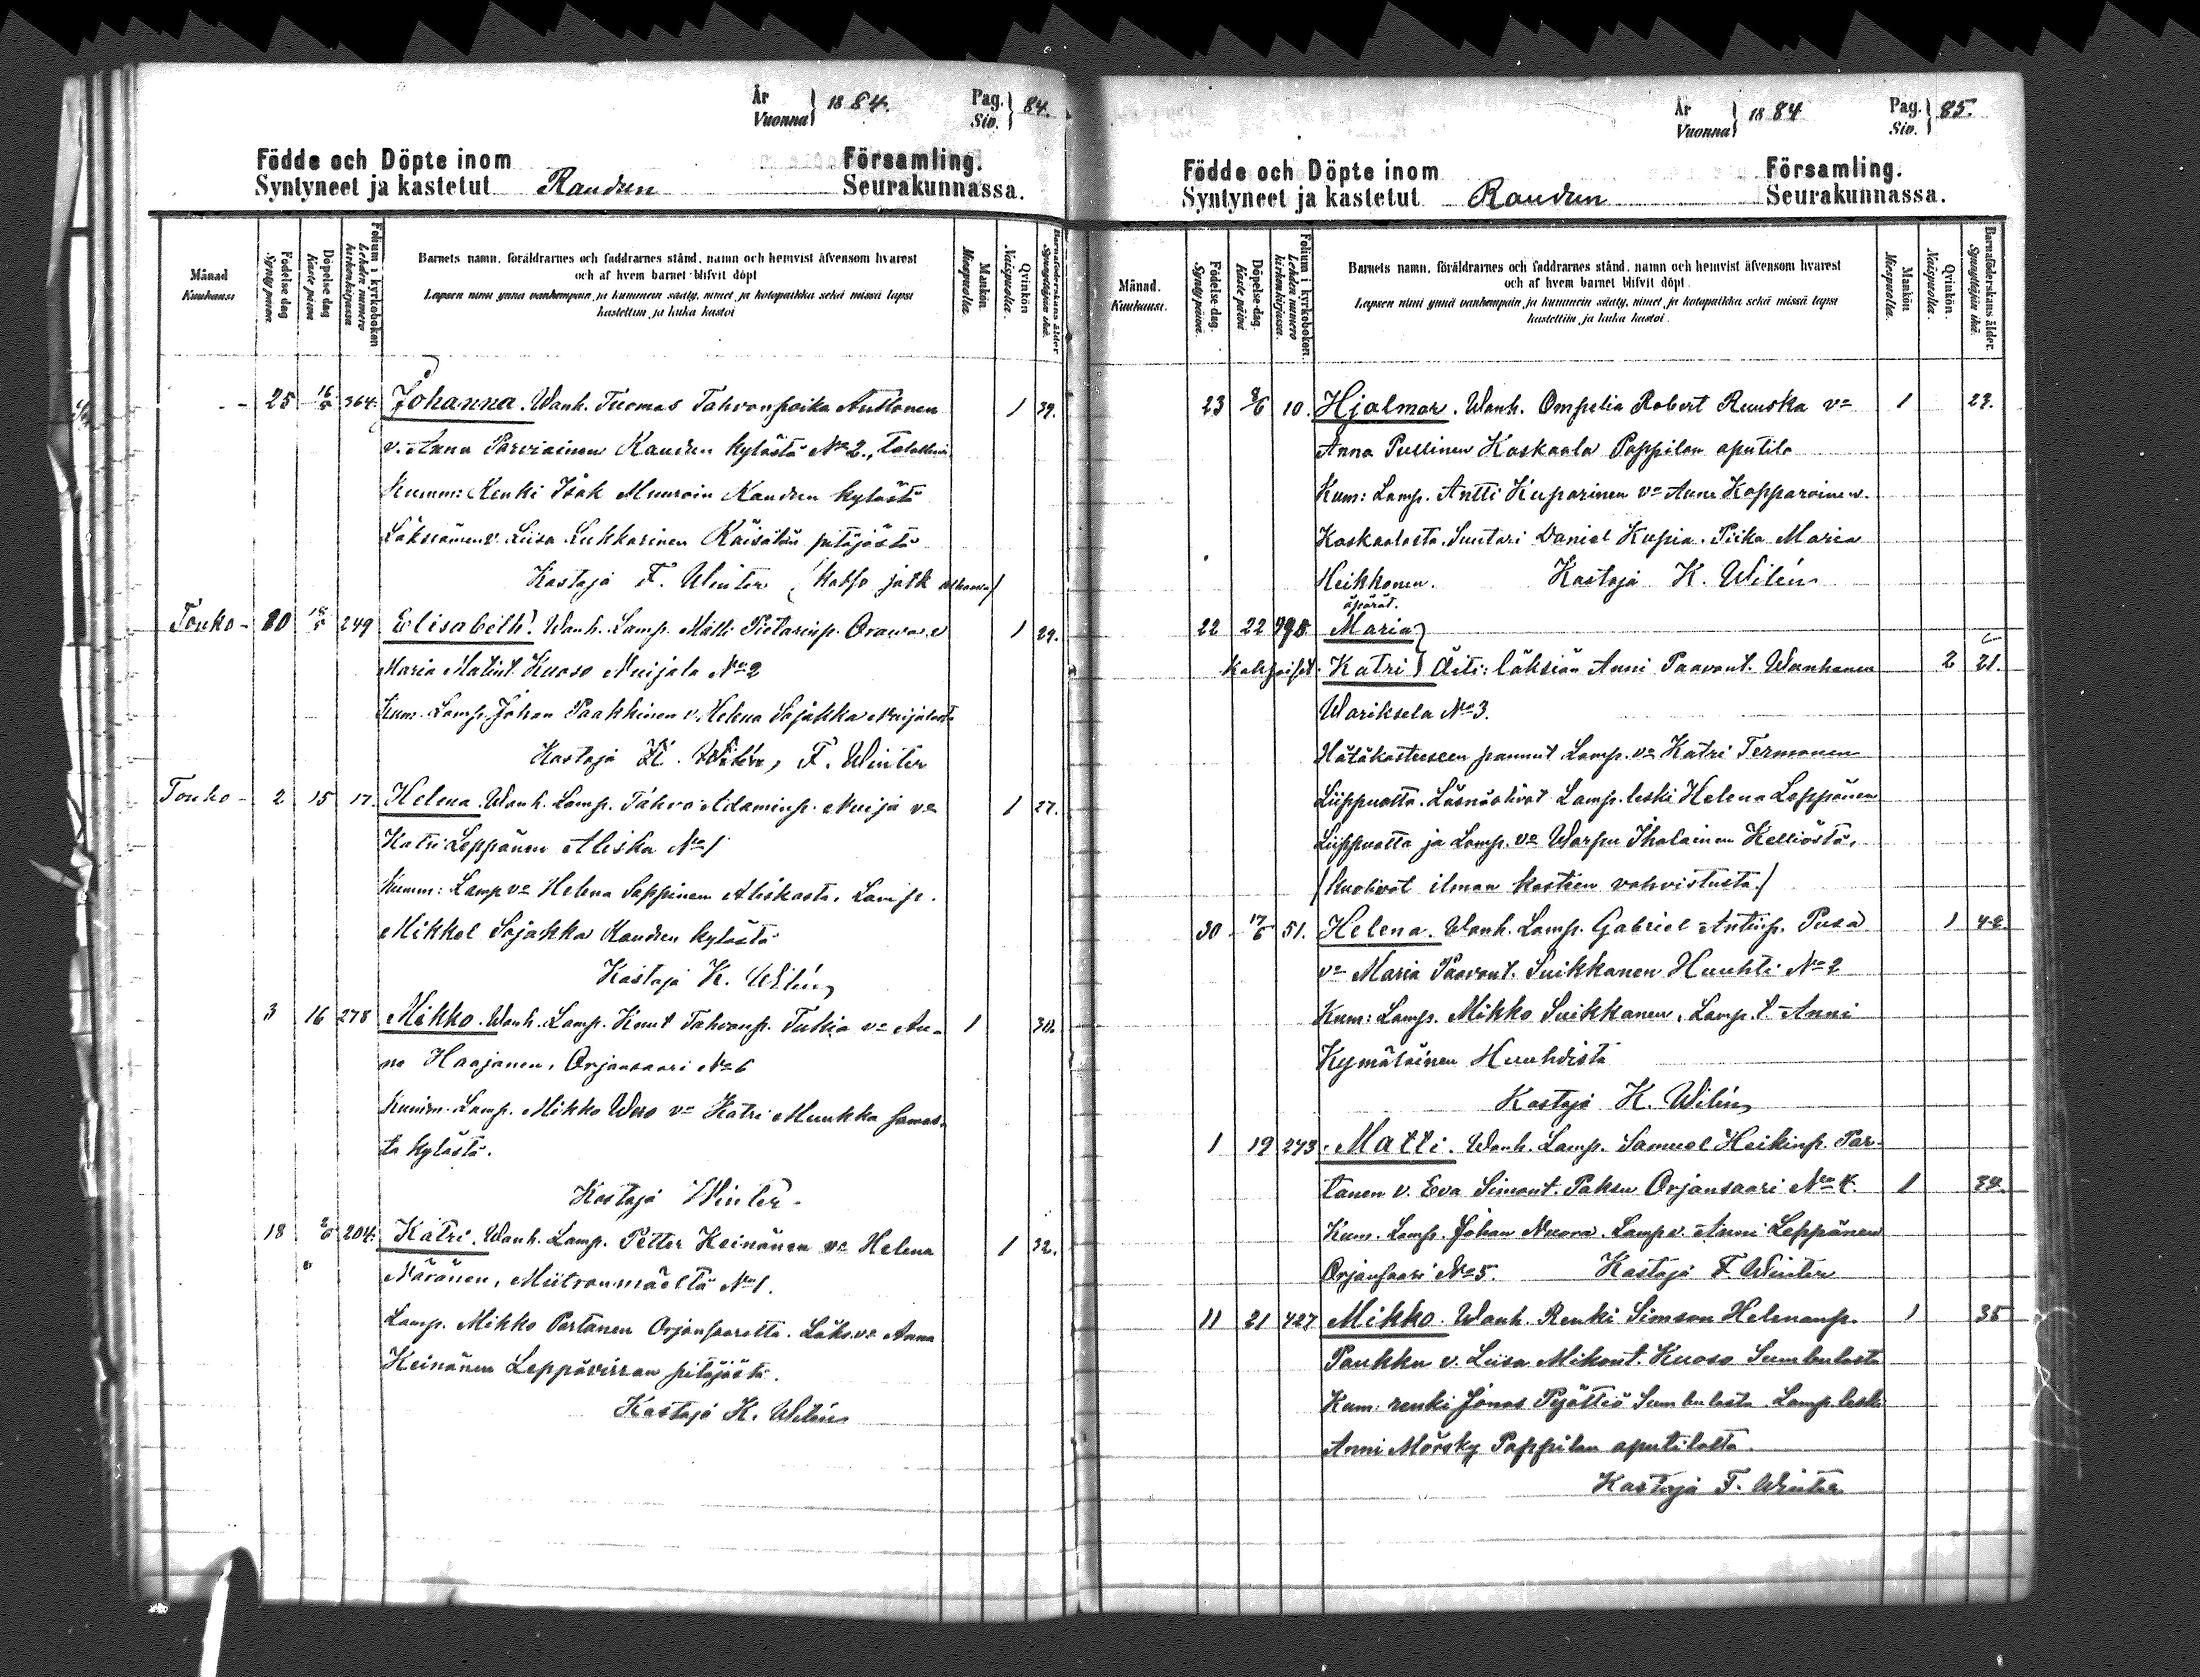 År 1884. Pag. 84.
Vuonna Siv.
Födde och Döpte inom Församling.
Syntyneet ja kastetut Raudun Seurakunnassa.
Månad Kuukausi
Födelse dag Synty päivä
Döpelse dag Kaste päivä
Folium i kyrkoboken Lehden numero kirkonkirjassa
Barnets namn, föräldrarnes och faddrarnes stånd, namn och hemvist äfvensom hvarest
och af hvem barnet blifvit döpt
Lapsen nimi ynnä vanhempain ja kummein sääty, nimet ja kotopaikka sekä missä lapsi
kastettiin ja kuka kastoi
Mankön Miespuolia.
Qvinkön Naispuolia.
Barnaföderskans ålder Synnyttäjän ikä.
25 16/5 364. Johanna. Wanh. Tuomas Tahvonpoika Anttonen 1 39.
v. Anna Parviainen Raudun kylästä No 2.,
Kumm: Renki Isak Muuroin Raudun kylästä
Läksiämen v. Liisa Lukkarinen Räisälän pitäjästä
Kastaja F. Winter (katso jatk
Touko- 20 18/5 249 Elisabeth. Wanh. Lamp. Matti Pietarinp. Orava v. 1 29.
Maria Matint. Kuoso Nuijala No 2
Kum. Lamp. Johan Paakkinen v. Helena Sojakka Nuijalasta
Kastaja K. Wilén, F. Winter
Touko- 2 15 17. Helena. Wanh. Lamp. Tahvo Adaminp. Nuija va 1 27.
Katri Leppänen Aliska No 1
Kumm: Lamp va Helena Seppinen Aliskasta. Lamp.
Mikkel Sojakka Raudun kylästä
Kastaja K. Wilén
3 16 278 Mikko. Wanh. Lamp. Knut Tahvonp. Tuttia va An- 1
na Haajanen, Orjansaari No 6
Kumm. Lamp. Mikko Weso va Katri Muukka samas-
ta kylästä.
Kastaja Winter.
18 2/6 204. Katri. Wanh. Lamp. Petter Keinänen va Helena 1 32.
Näränen, Miitronmäeltä No 1.
Lamp. Mikko Partanen Orjansaaresta. Läks. va Anna
Keinänen Leppävirran pitäjästä.
Kastaja K. Wilén
År 1884 Pag. 85.
Vuonna Siv.
Födde och Döpte inom Församling.
Syntyneet ja kastetut Raudun Seurakunnassa.
Månad. Kuukausi.
Födelse-dag. Synty päivä.
Döpelse-dag. Kaste päivä
Folium i kyrkoboken. Lehden numero kirkonkirjassa.
Barnets namn, föräldrarnes och faddrarnes stånd, namn och hemvist äfvensom hvarest
och af hvem barnet blifvit döpt.
Lapsen nimi ynnä vanhempain ja kummein sääty, nimet ja kotopaikka sekä missä lapsi
kastettiin ja kuka kastoi.
Mankön Miespuolia.
Qvinkön. Naispuolia.
Barnaföderskans ålder. Synnyttäjän ikä.
23 8/6 10. Hjalmar. Wanh. Ompelia Robert Ruuska va 1 23.
Anna Pullinen Kaskaala Pappilan aputila
Kum: Lamp. Antti Kuparinen va Anna Kopparoinen.
Kaskaalasta. Suutari Daniel Kupia. Piika Maria
Heikkonen. Kastaja K. Wilén
äpärät.
22 22 798 Maria
kaksoiset. Katri Äiti: läksiän Anni Paavont. Wanhanen 2 21.
Wariksela No 3.
Hätäkasteeseen pannut Lamp. va Katri Termonen
Liippuatta. Läsnäolivat Lamp. leski Helena Leppänen
Liippuatta ja Lamp. va Warpu Ihalainen Kelliöstä.
(Kuolivat ilman kasteen vahvistusta)
30 17/6 51. Helena. Wanh. Lamp. Gabriel Antinp. Pusa 1 42.
va Maria Paavont. Suikkanen Huuhti No 2
Kum: Lamp. Mikko Suikkanen, Lamp. t. Anni
Kymäläinen Huuhdista
Kastaja K. Wilén
1 19 273 Matti. Wanh. Lamp. Samuel Heikinp. Par-
tanen v. Eva Simont. Paksu Orjansaari No 4. 1 34.
Kum. Lamp. Johan Nuora. Lamp v. Anni Leppänen
Orjansaari No 5. Kastaja F. Winter
11 21 427 Mikko. Wanh. Renki Simson Helenanp. 1 35
Paukku v. Liisa Mikont. Kuoso Sumbulasta
Kum: renki Jonas Pyöttiä Sumbulasta. Lamp. leski
Anni Mörsky Pappilan aputilalta.
Kastaja F. Winter